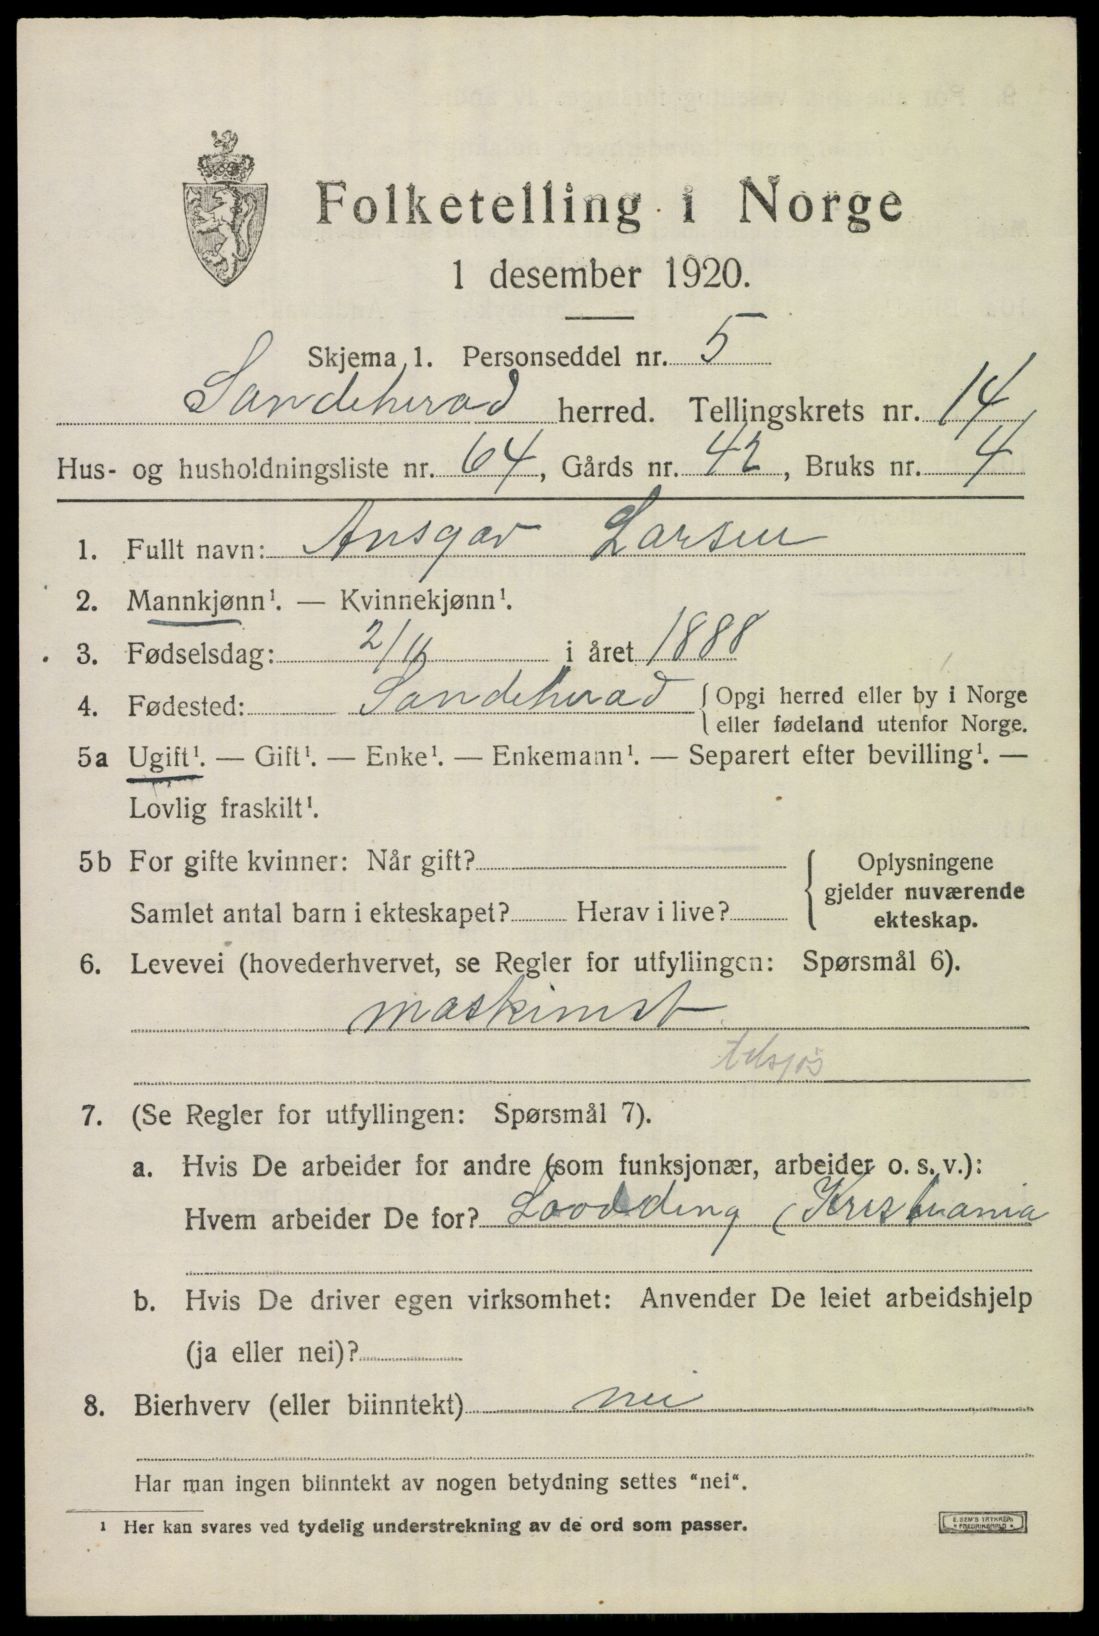 Folketelling i Norge
1 desember 1920.
Skjema 1. Personseddel nr. 5
Sandeherad herred. Tellingskrets nr. 14
Hus- og husholdningsliste nr. 64, Gårds nr. 42, Bruks nr. 4
1. Fullt navn: Ansgar Larsen
2. Mannkjønn¹. — Kvinnekjønn¹.
3. Fødselsdag: 2/11 i året 1888
4. Fødested: Sandeherad { Opgi herred eller by i Norge
eller fødeland utenfor Norge.
5a Ugift¹. — Gift¹. — Enke¹. — Enkemann¹. — Separert efter bevilling¹. —
Lovlig fraskilt¹.
5b For gifte kvinner: Når gift?
Samlet antal barn i ekteskapet? Herav i live?
{ Oplysningene
gjelder nuværende
ekteskap.
6. Levevei (hovederhvervet, se Regler for utfyllingen: Spørsmål 6).
maskinist
7. (Se Regler for utfyllingen: Spørsmål 7).
a. Hvis De arbeider for andre (som funksjonær, arbeider o. s. v.):
Hvem arbeider De for? (Kristiania
b. Hvis De driver egen virksomhet: Anvender De leiet arbeidshjelp
(ja eller nei)?
8. Bierhverv (eller biinntekt) nei
Har man ingen biinntekt av nogen betydning settes "nei".
¹ Her kan svares ved tydelig understrekning av de ord som passer.
E. SEM'S TRYKKERI
FREDRIKSHALD